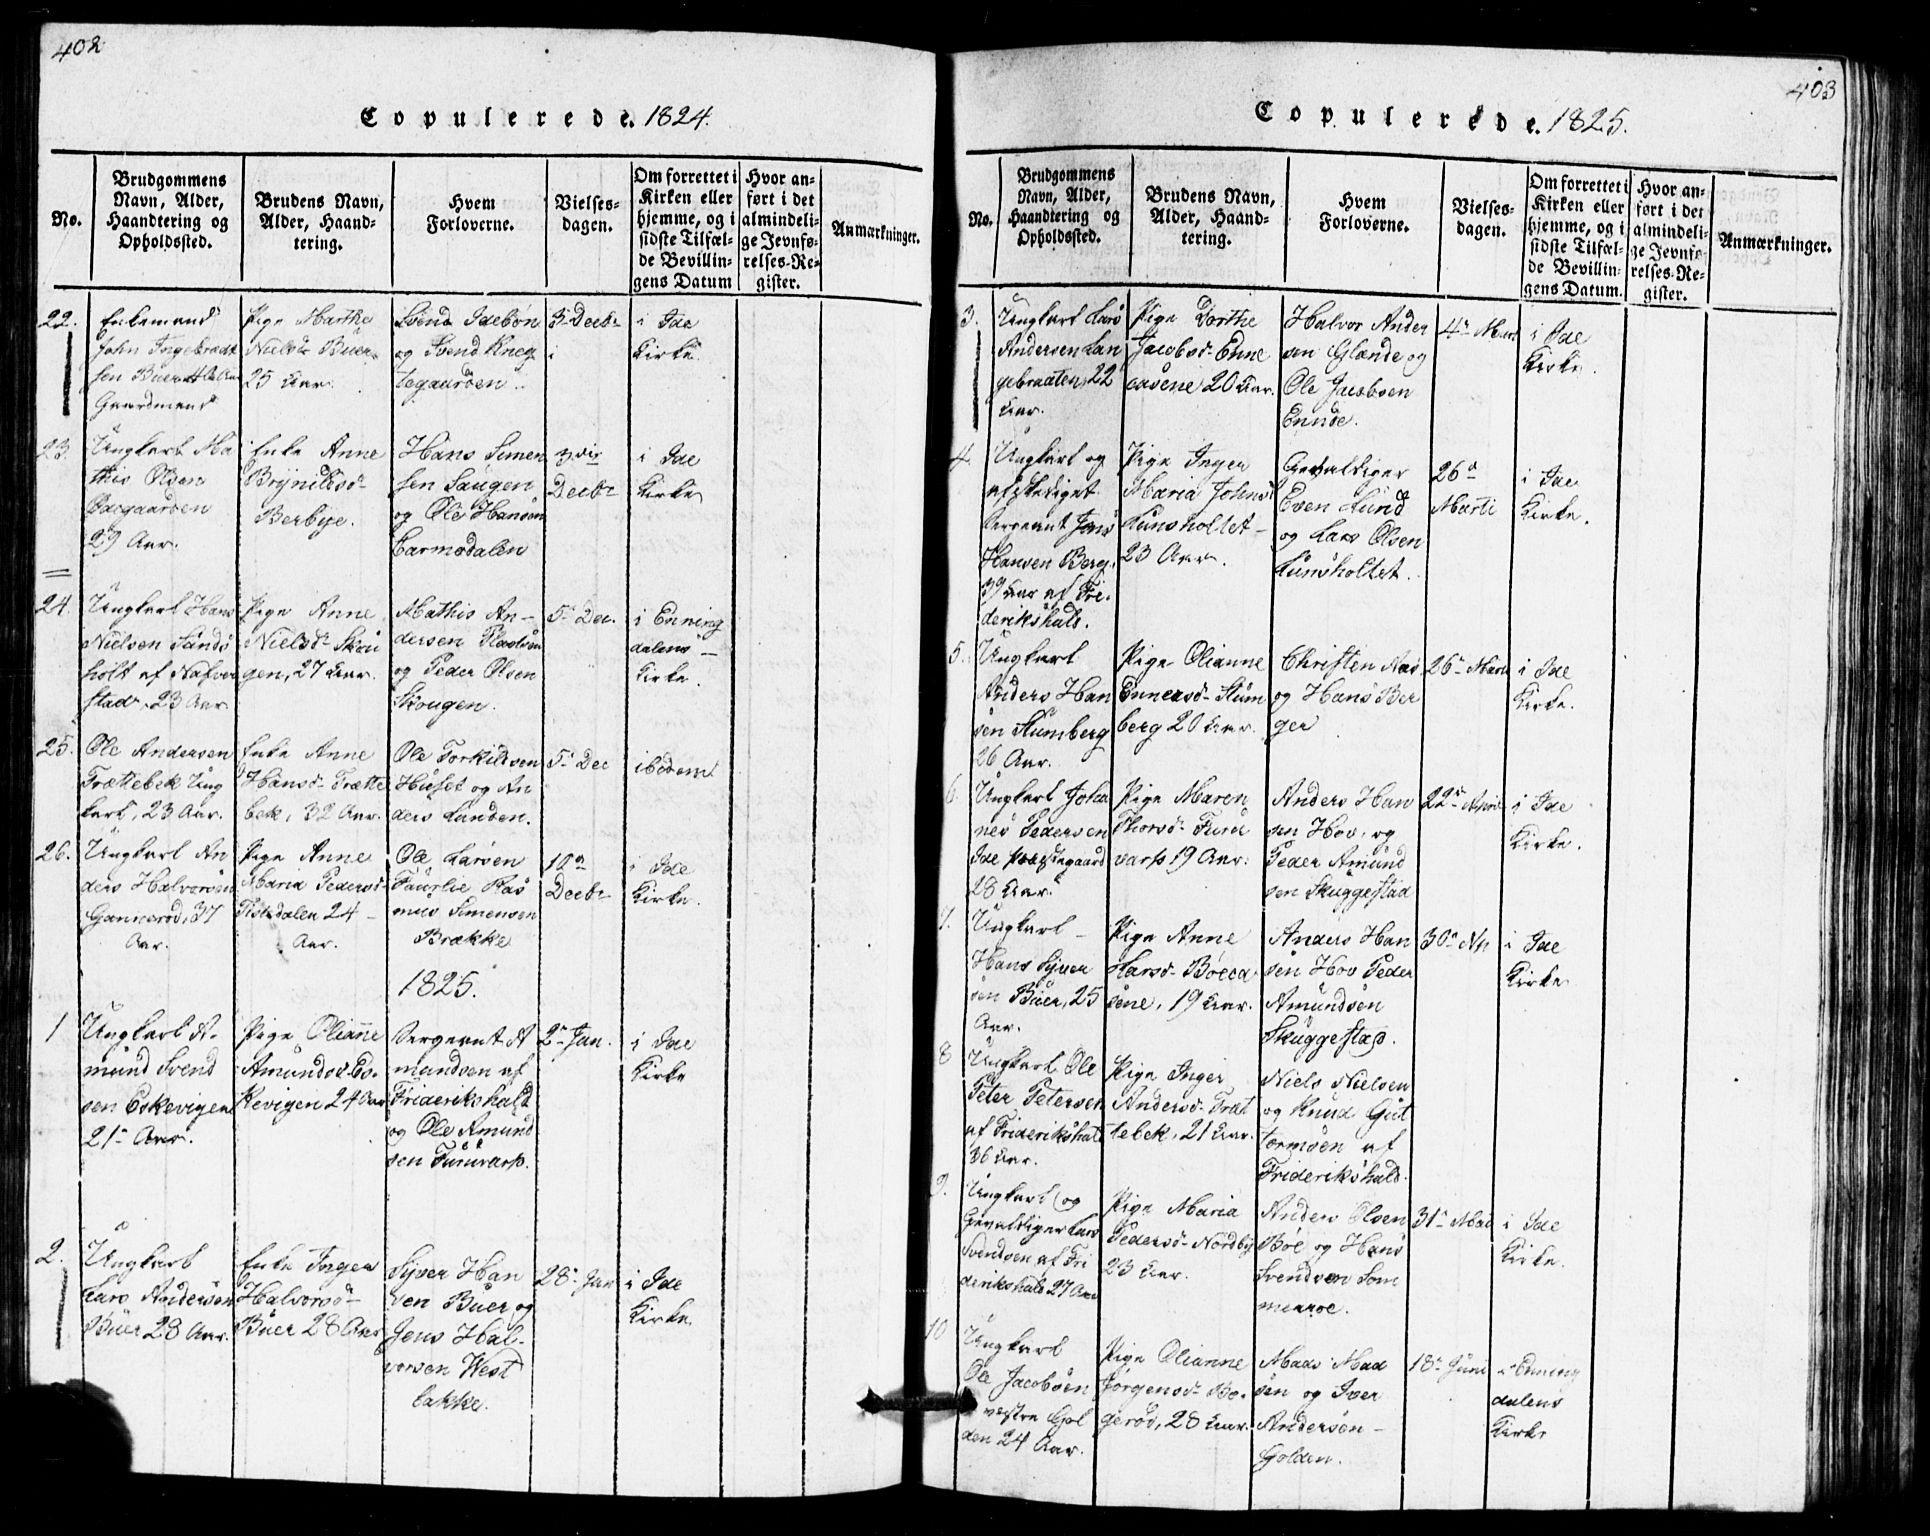 402
Copulerede. 1824.
No.
Brudgommens
Navn, Alder,
Haandtering og
Opholdssted.
Brudens Navn,
Alder, Haand-
tering.
Hvem
Forloverne.
Vielses-
dagen.
Om forrettet i
Kirken eller
hjemme, og i
sidste Tilfæl-
de Bevillin-
gens Datum
Hvor an-
ført i det
almindeli-
ge Jevnfø-
relses-Re-
gister.
Anmærkninger.
22.
Enkemand
John Ingebredt
sen Buer
Gaardmand
Pige Marthe
Nielsd. Buer
25 Aar.
Svend Idebøn
og Svend Kneg
tegaarden.
3 Decbr
i Ide
Kirke.
23.
Ungkarl Ma
this Olsen
29 Aar.
Enke Anne
Brynildsd.
Berbye.
Hans Simen
sen Saugen
og Ole Hansen
Carmodalen
3die
Decbr
i Ide
Kirke
24.
Ungkarl Hans
Nielsen Sands
holt af Nafver
stad, 23 Aar
Pige Anne
Nielsd. Skou
gen, 27 Aar.
Mathis An-
dersen
og Peder Olsen
Skougen.
5 Dec.
i Enning
dalens
Kirke.
25.
Ole Andersen
Trættebek Ung
karl, 23 Aar.
Enke Anne
Hansd. Trætte
bek, 32 Aar.
Ole Torkildsen
Huset og An
ders Lunden.
5 Dec
ibidem
26.
Ungkarl An
ders Halvorsen
Gannerød, 37
Aar.
Pige Anne
Maria Pedersd.
Tistedalen 24
Aar.
Ole Larsen
Faurlie Ras
mus Simensen
Brække
10a
Decbr
i Ide
Kirke.
1825.
1
Ungkarl A-
mund Svend
sen Eskevigen
21 Aar.
Pige Olianne
Amundsd. Es-
kevigen 24 Aar
Sergeant A
mundsen af
Friderikshald
og Ole Amund
sen Furuvarp.
2 Jan.
i Ide
Kirke
2.
Ungkarl
Lars Andersen
Buer 28 Aar.
Enke Inger
Halvorsd.
Buer 28 Aar
Syver Han
sen Buer og
Jens Hal-
vorsen West
bakke.
28 Jan
i Ide
Kirke.
403
Copulerede. 1825.
No.
Brudgommens
Navn, Alder,
Haandtering og
Opholdssted.
Brudens Navn,
Alder, Haand-
tering.
Hvem
Forloverne.
Vielses-
dagen.
Om forrettet i
Kirken eller
hjemme, og i
sidste Tilfæl-
de Bevillin-
gens Datum.
Hvor an-
ført i det
almindeli-
ge Jevnfø-
relses-Re-
gister.
Anmærkninger.
3.
Ungkarl Lars
Andersen Lan
gebraaten, 22
Aar.
Pige Dorthe
Jacobsd. Enne
aasene 20 Aar.
Halvor Ander
sen Glende og
Ole Jacobsen
4 Marti
i Ide
Kirke.
4.
Ungkarl og
afskediget
Sergeant Jens
Hansen Berg,
39 Aar af Fri-
derikshald.
Pige Inger
Maria Johnsd.
Lunsholtet
23 Aar.
Gevaldiger
Even Lund
og Lars Olsen
Lunsholtet.
26
Marti
i Ide
Kirke.
5.
Ungkarl
Anders Han
sen Stumberg
26 Aar.
Pige Olianne
Ennersd. Stum
berg 20 Aar.
Christen Aas
og Hans Ber
ger
26 Marti
i Ide
Kirke.
6.
Ungkarl Joha
nes Pedersen
Ide Præstegaard
28 Aar.
Pige Maren
Thorsd. Furu
varp 19 Aar.
Anders Han
sen Hov, og
Peder Amund
sen Skuggestad
22 April
i Ide
Kirke.
7.
Ungkarl
Hans Syver
sen Buer, 25
Aar.
Pige Anne
Larsd.
sene, 19 Aar.
Anders Han
sen Hov Peder
Amundsen
Skuggestad.
30 Ap
i Ide
Kirke
8
Ungkarl Ole
Peter Petersen
af Friderikshald
36 Aar.
Pige Inger
Andersd. Træt
tebek, 21 Aar.
Niels Nielsen
og Knud Gut
tormsen af
Friderikshald.
9.
Ungkarl og
Gevaldiger Lars
Svendsen af Fri
derikshald 27 Aar
Pige Maria
Pedersd. Nordby
23 Aar.
Anders Olsen
Bøe og Hans
Svendsen Som
meroe.
31 Mai
i Ide
Kirke.
10
Ungkarl
Ole Jacobsen
vestre Gol
den 24 Aar.
Pige Olianne
Jørgensd. Bo-
gerød, 28 Aar.
Mads Mad
sen og Iver
Andersen
Golden.
18 Juni
i Enning
dalens
Kirke